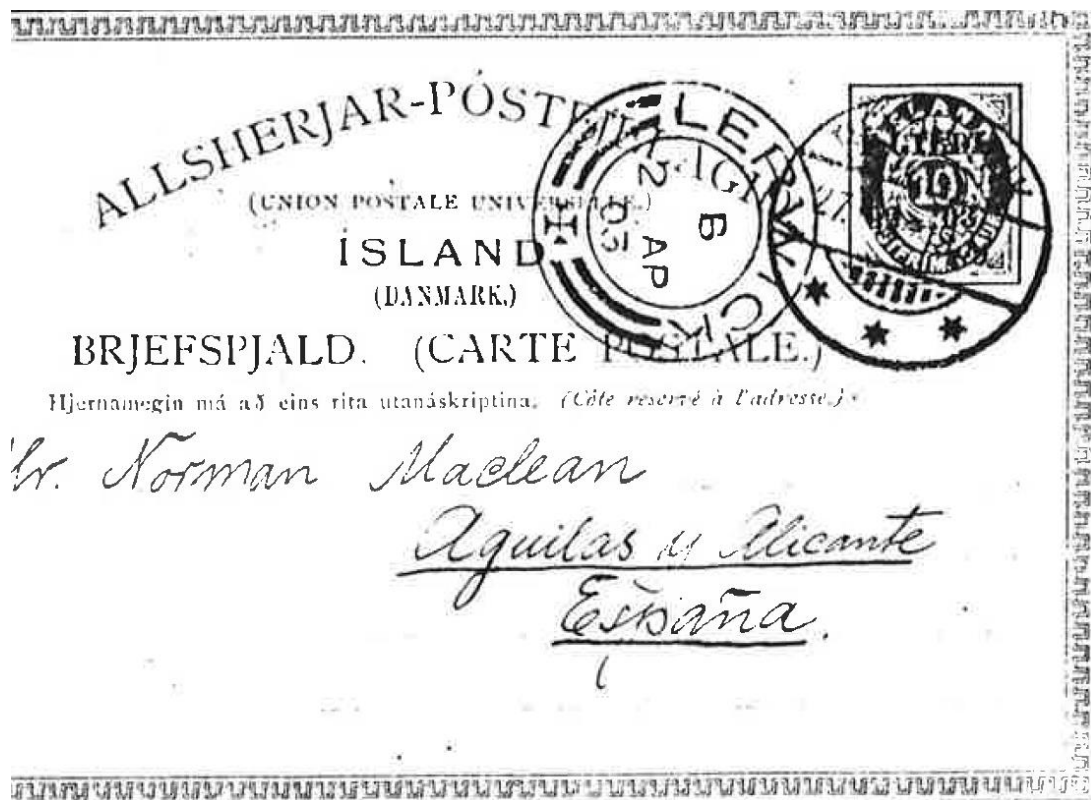 ALLSHERJAR-PÓSTFJELAGIÐ
(UNION POSTALE UNIVERSELLE.)
ÍSLAND
(DANMARK.)
BRJEFSPJALD. (CARTE POSTALE.)
Hjernamegin má að eins rita utanáskriptina. (Côté reservé à l'adresse.)
LERWICK
B
2 AP
10
Norman Maclean
Aguilas y Alicante
España.